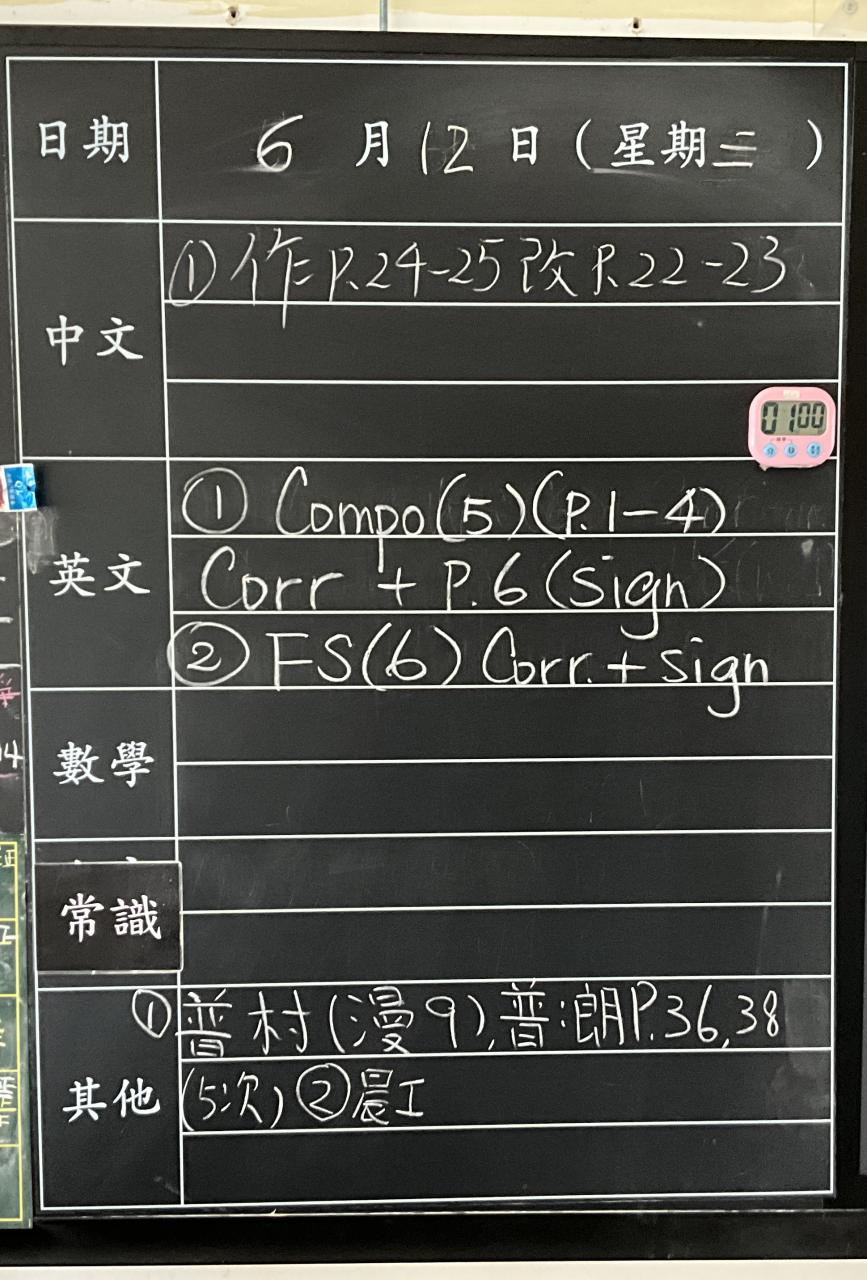 日期 6 月 12 日 (星期三 )
中文
① 作 P.24-25 改 P.22-23
01 00
英文
① Compo(5)(P.1-4)
Corr + P.6 (sign)
② FS(6) Corr. + sign
數學
常識
其他
① 普村(漫9),普:朗P.36,38
(5次) ②晨工